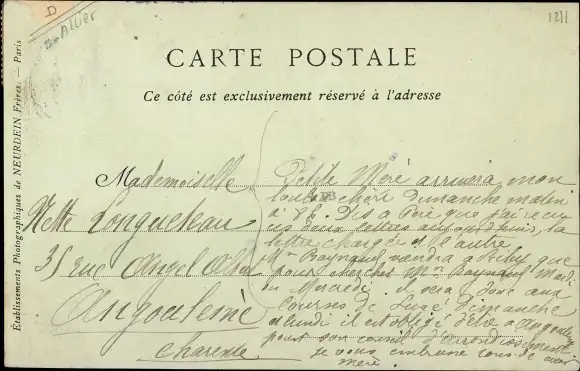 D
Allier
1211
CARTE POSTALE
Ce côté est exclusivement réservé à l'adresse
Établissements Photographiques de NEURDEIN Frères. — Paris
Mademoiselle
Nette Longueteau
35 rue
Angoulême
Charente
Petite Mère arrivera mon
cheri dimanche matin
à 8h. Dis à Père que j'ai reçu
ces deux lettres aujourd'hui, la
lettre chargée et l'autre.
Mr Raynaud viendra à Vichy que
pour chercher Mme Raynaud Mardi
ou Mercredi. il sera donc aux
Courses de Luxé dimanche
et lundi il est obligé d'être à Angoulême
pour son conseil d'arrondissement
je vous embrasse tous de cœur
mère